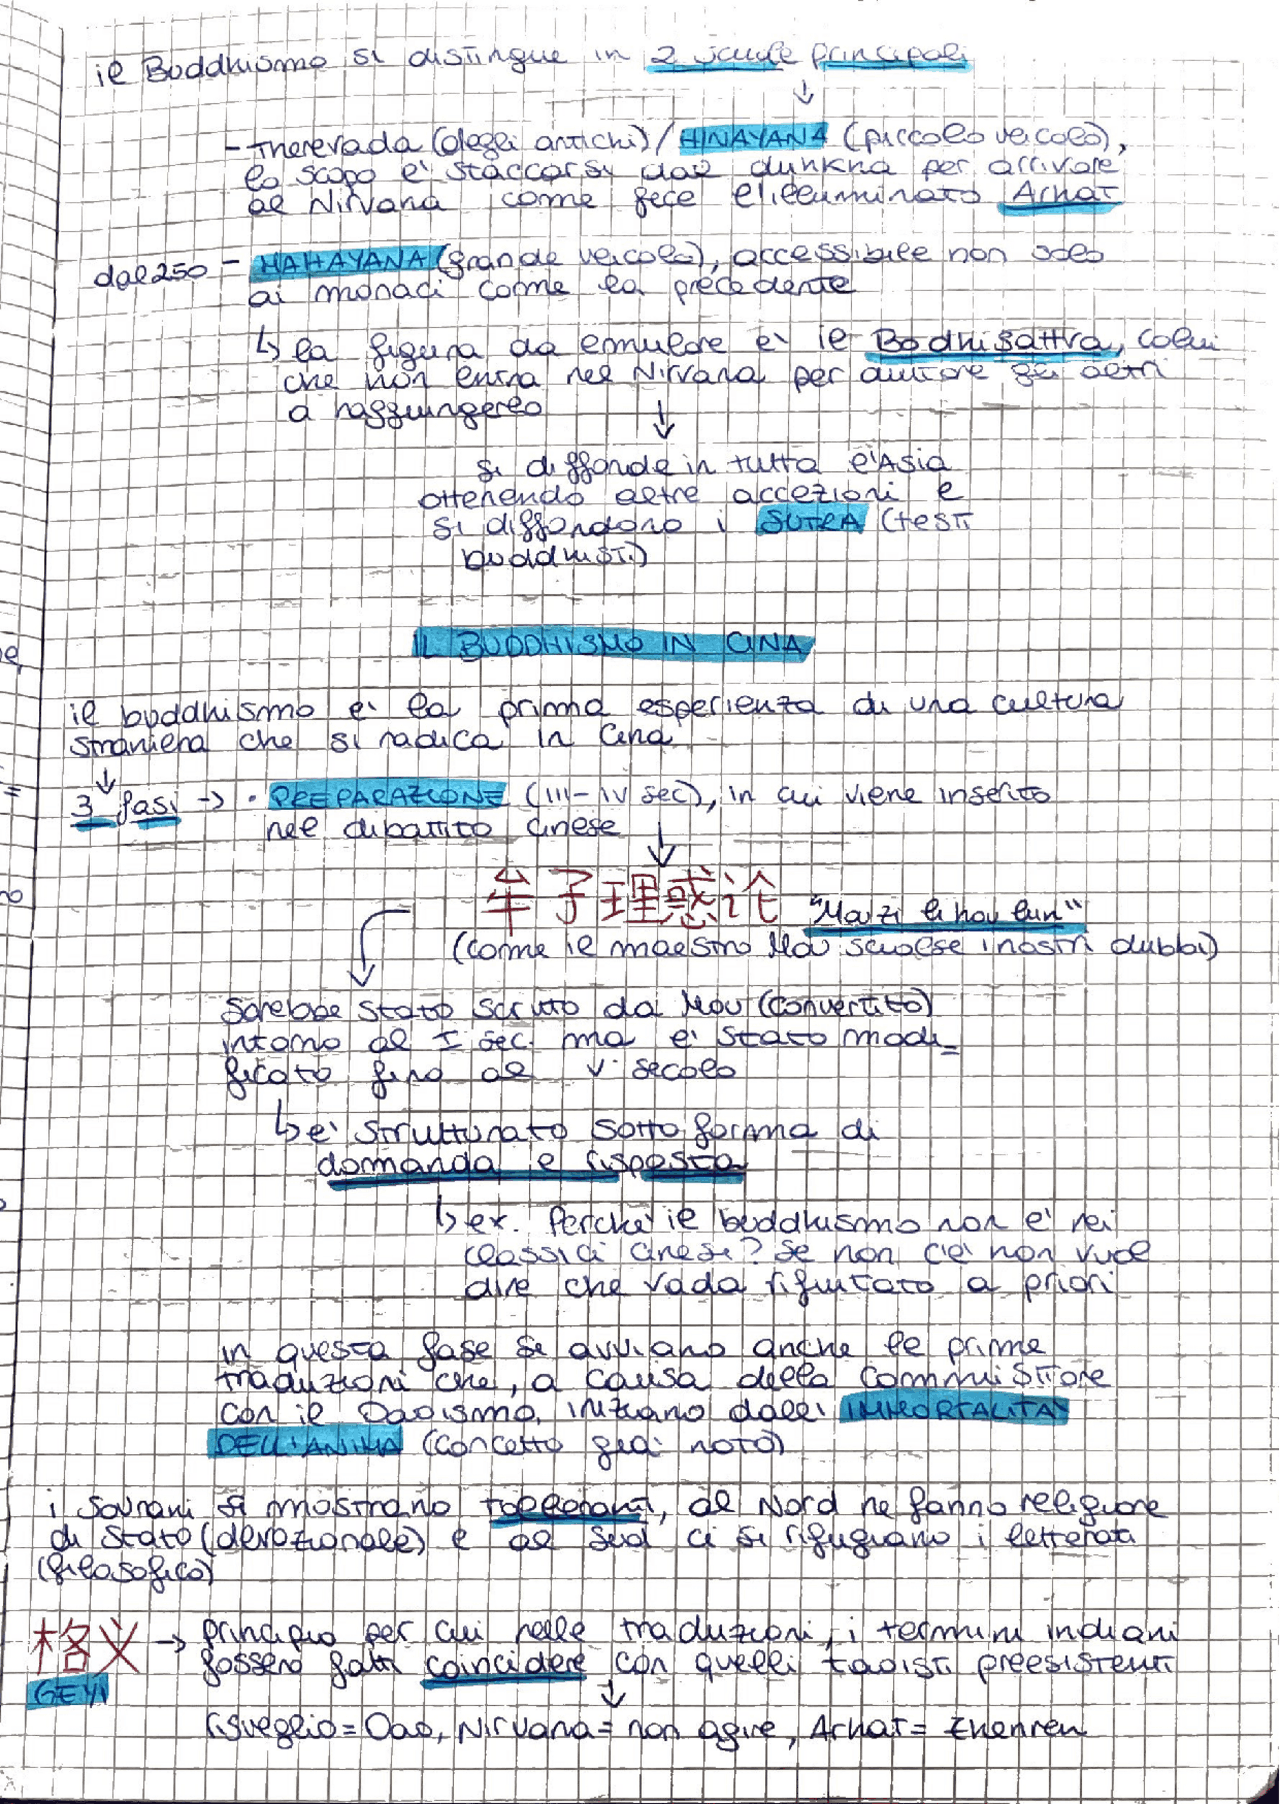 il Buddhismo si distingue in 2 scuole principali
↓
- Therevada (degli antichi) / HINAYANA (piccolo veicolo),
lo scopo è staccarsi dal dunkha per arrivare
al Nirvana come fece l'illuminato Arhat
dal 250 - MAHAYANA (grande veicolo), accessibile non solo
ai monaci come la precedente
↳ la figura da emulare è il Bodhisattva, colui
che non entra nel Nirvana per aiutare gli altri
a raggiungerlo
↓
si diffonde in tutta l'Asia
ottenendo altre accezioni e
si diffondono i SUTRA (testi
buddhisti)
IL BUDDHISMO IN CINA
il buddhismo è la prima esperienza di una cultura
straniera che si radica in Cina
↓
3 fasi → • PREPARAZIONE (III-IV sec), in cui viene inserito
nel dibattito cinese
↓
牟子理惑论 "Mouzi li huo lun"
(come il maestro Mou sciolse i nostri dubbi)
Sarebbe stato scritto da Mou (convertito)
intorno al I sec. ma è stato modi=
ficato fino al V secolo
↳ è strutturato sotto forma di
domanda e risposta
↳ ex. Perché il buddhismo non è nei
classici cinesi? Se non c'è non vuol
dire che vada rifiutato a priori
in questa fase si avviano anche le prime
traduzioni che, a causa della commistione
con il Daoismo, iniziano dall'IMMORTALITÀ
DELL'ANIMA (concetto già noto)
i sovrani si mostrano tolleranti, al Nord ne fanno religione
di Stato (devozionale) e al Sud ci si rifugiano i letterati
(filosofico)
格义 → principio per cui nelle traduzioni, i termini indiani
fossero fatti coincidere con quelli taoisti preesistenti
GEYI
↓
risveglio = Dao, Nirvana = non agire, Arhat = zhenren